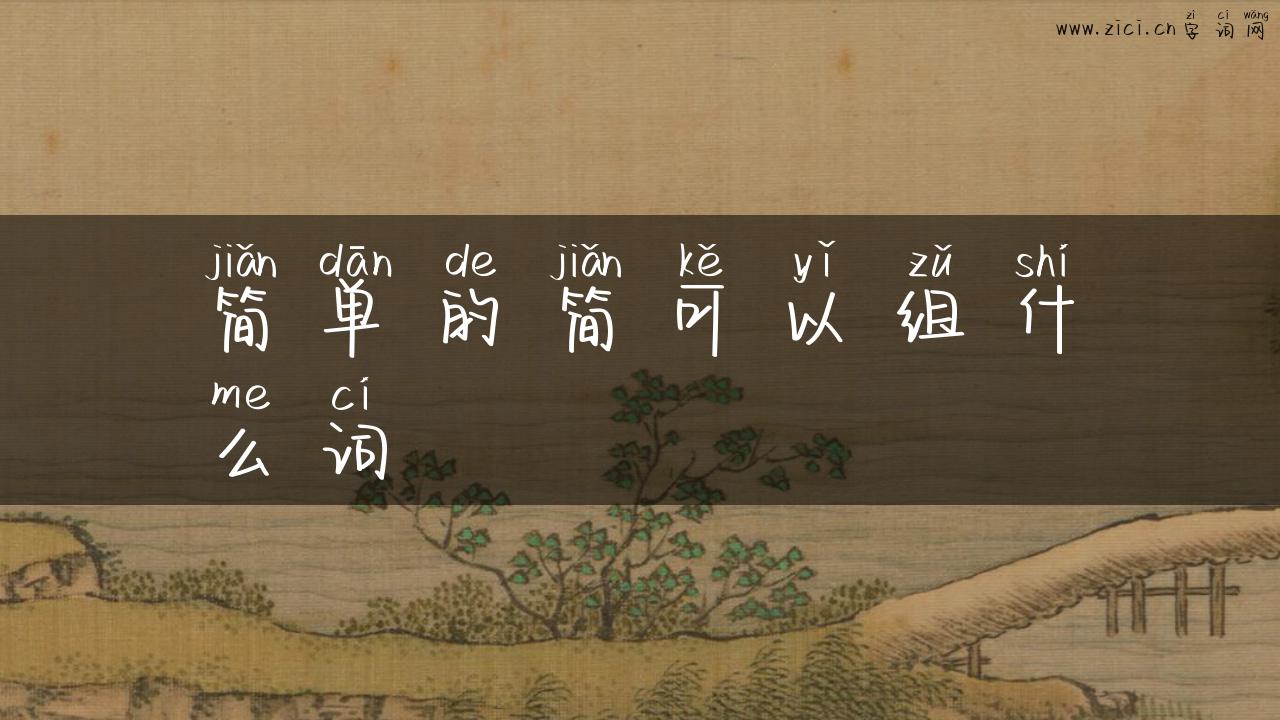 zì cí wǎng
www.zici.cn 字词网
jiǎn dān de jiǎn kě yǐ zǔ shí
简单的简可以组什
me cí
么词